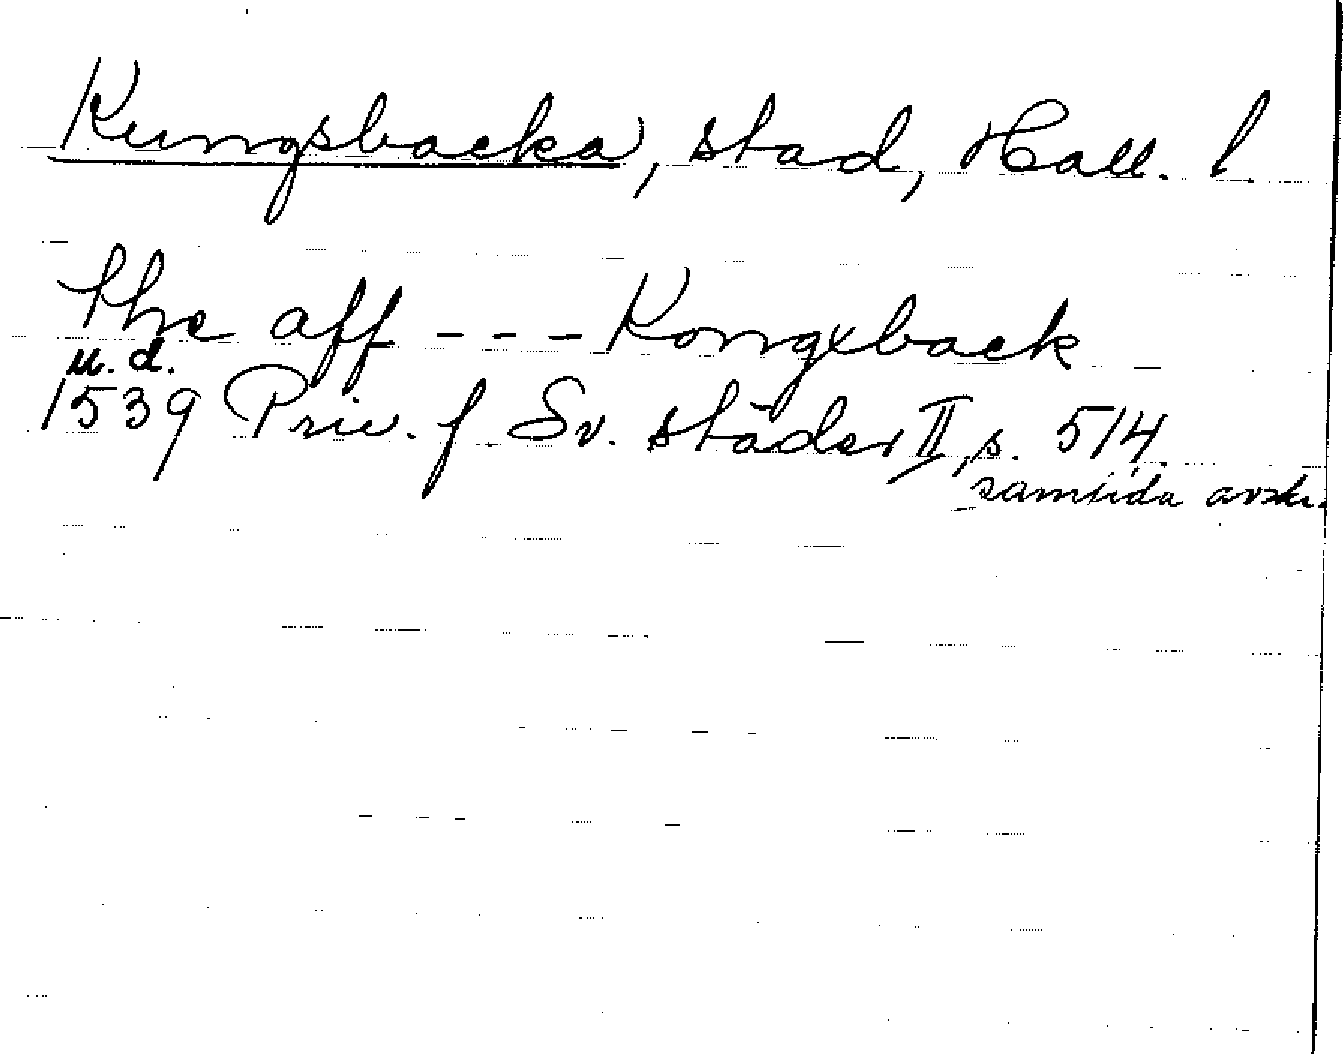 Kungsbacka, stad, Hall. l.
the aff - - - Kongxback
u. d.
1539 Priv. f Sv. städer II, s. 514
samtida avskr.